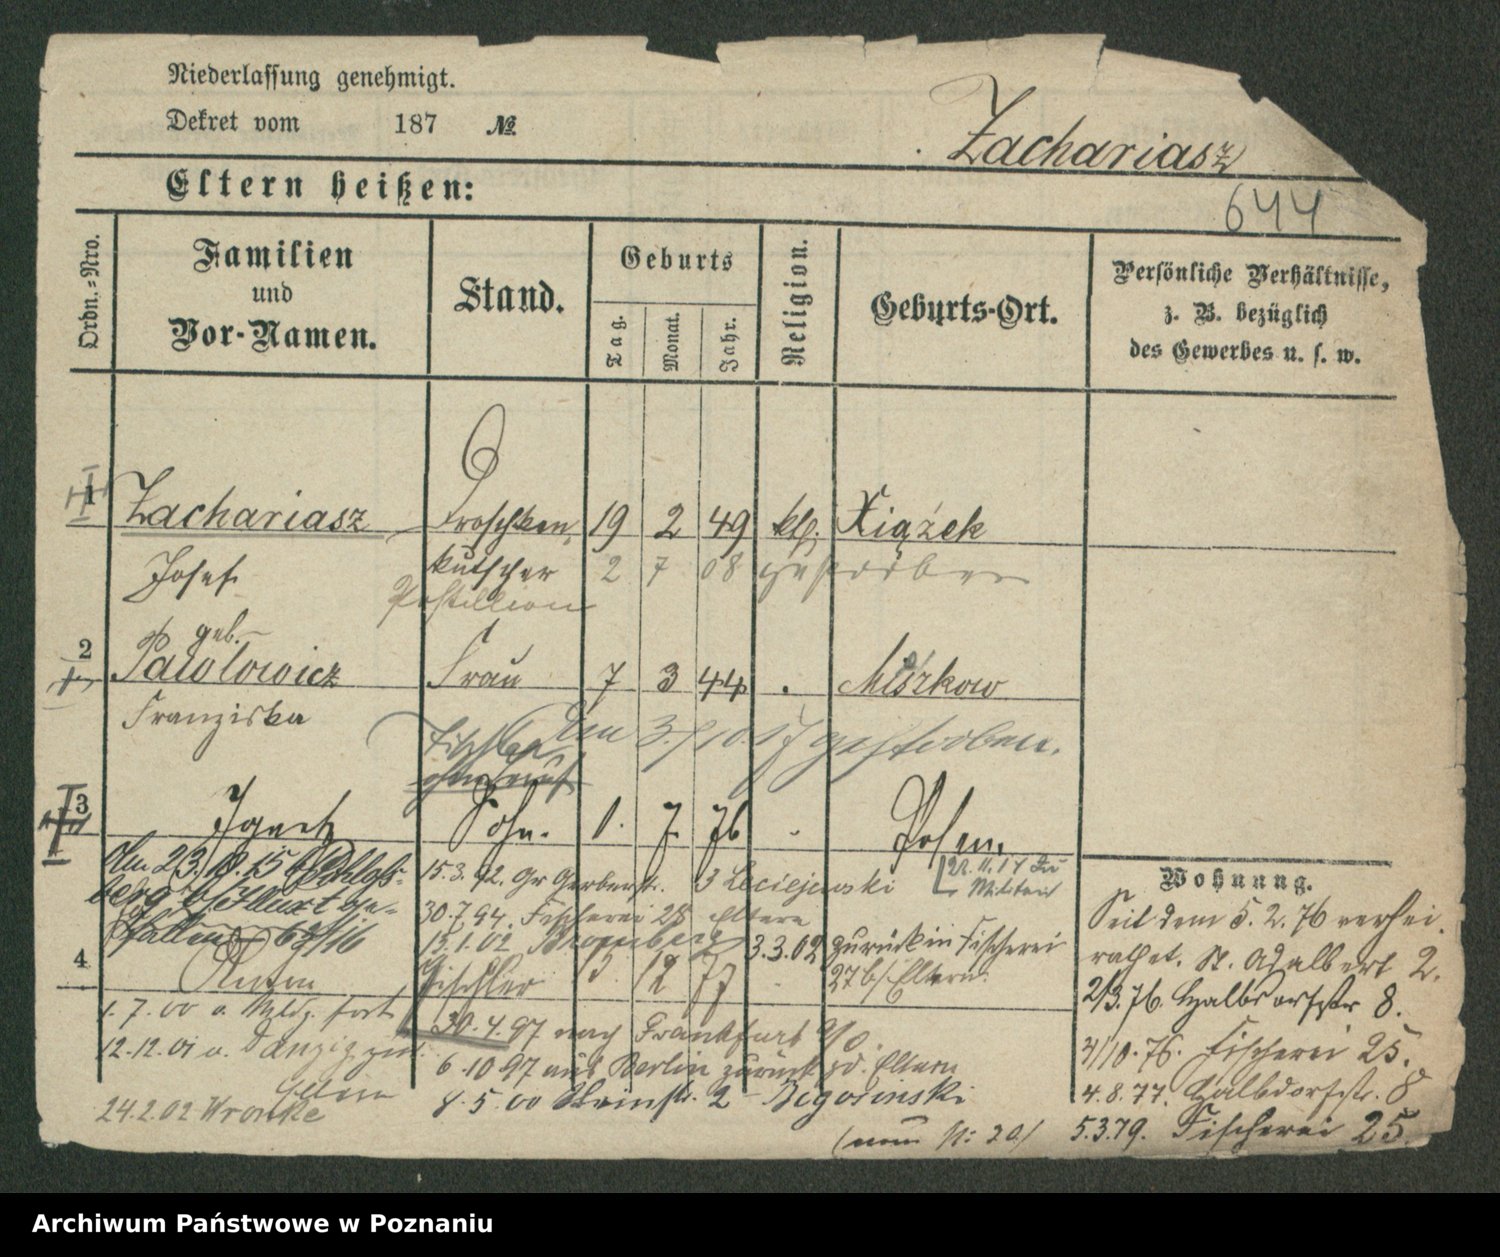 Niederlassung genehmigt.
Dekret vom 187 №
Zachariasz
Eltern heißen:
644
Ordn.=Nro.
Familien
und
Vor-Namen.
Stand.
Geburts
Tag.
Monat.
Jahr.
Religion.
Geburts-Ort.
Persönliche Verhältnisse,
z. B. bezüglich
des Gewerbes u. s. w.
1 Zachariasz Droschken 19 2 49 kth. Xiążek
Josef kutscher 2 7 08 gestorben
Postillion
geb.
2 Pawlowicz Frau 7 3 44 Miszkow
Franziska
3. 10. 17 gestorben.
3 Ignatz Sohn. 1. 7. 76 Posen.
Am 23. 15 Schloß-
berg b/Illuxt ge-
fallen
15.3.92. Gr Gerberstr. 3 Leciejewski
22.11.14 zu Militär
30.7.94. Fischerei 28 Eltern
15.1.02 Bromberg 3.3.02 zurück in Fischerei
27 b/Eltern.
4 Anton Tischler 5. 12 77
1.7.00 a. fort
12.12.01 a. Danzig zur.
Eltern
24.2.02 Wronke
30.4.97 nach Frankfurt a/O.
6.10.97 aus Berlin zurück zd. Eltern
8.5.00 2 Begosinski
(neu N: 20/
Wohnung.
Seit dem 5.2.76 verhei.
rathet. St. Adalbert 2.
2/3.76. Halbdorfstr 8.
4/10.76. Fischerei 25.
4.8.77. Halbdorfstr. 8
5.3.79. Fischerei 25.
Archiwum Państwowe w Poznaniu